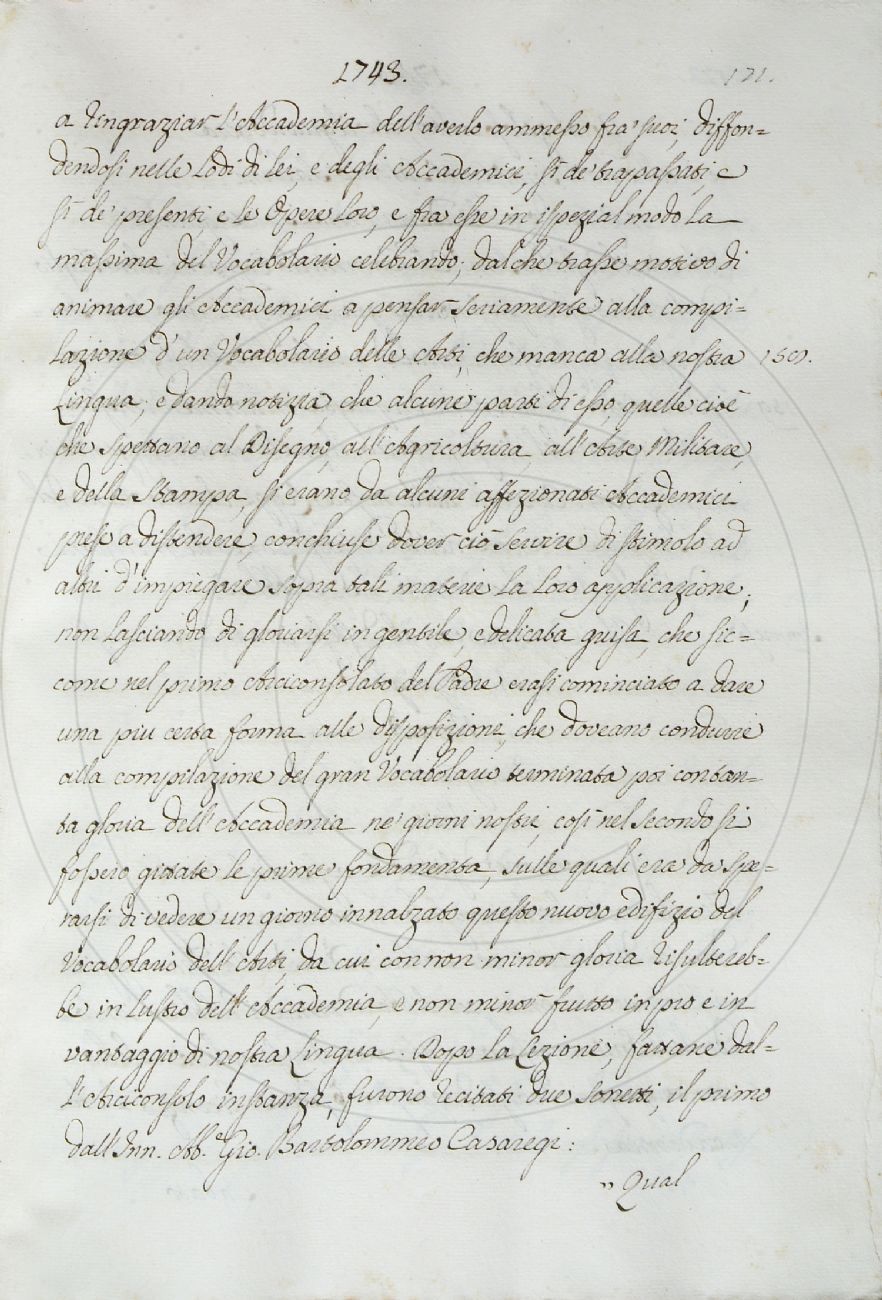 1743.
121.
a ringraziar l'Accademia dell'averlo ammesso fra' suoi, diffon=
dendosi nelle lodi di lei, e degli Accademici, sì de' trapassati, e
sì de' presenti, e le Opere loro, e fra esse in ispezial modo la
massima del Vocabolario celebrando; dal che trasse motivo di
animare gli Accademici a pensar seriamente alla compi=
lazione d'un Vocabolario delle Arti, che manca alla nostra
Lingua; e dando notizia, che alcune parti di esso, quelle cioè
che spettano al Disegno, all'Agricoltura, all'Arte Militare,
e della Stampa, si erano da alcuni affezionati Accademici
prese a distendere, conchiuse dover ciò servire di stimolo ad
altri d'impiegare sopra tali materie la loro applicazione;
non lasciando di gloriarsi in gentile, e delicata guisa, che sic=
come nel primo Arciconsolato del Padre erasi cominciato a dare
una piu certa forma alle disposizioni, che doveano condurre
alla compilazione del gran Vocabolario terminata poi con tan=
ta gloria dell'Accademia ne' giorni nostri, così nel secondo si
fossero gittate le prime fondamenta, sulle quali era da spe=
rarsi di vedere un giorno innalzato questo nuovo edifizio del
Vocabolario dell'Arti, da cui con non minor gloria risultereb=
be in lustro dell'Accademia, e non minor frutto in pro e in
vantaggio di nostra Lingua. Dopo la Lezione, fattane dal=
l'Arciconsolo instanza, furono recitati due Sonetti, il primo
dall'Inn. Ab.e Gio. Bartolommeo Casaregi:
" Qual